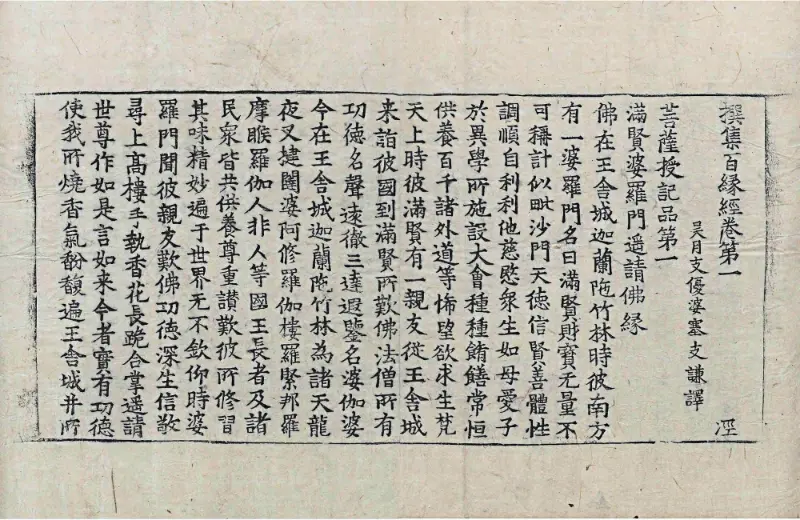 撰集百緣經卷第一
吴月支優婆塞支謙譯 涇
菩薩授記品第一
滿賢婆羅門遥請佛緣
佛在王舍城迦蘭陁竹林時彼南方
有一婆羅門名曰滿賢財寶无量不
可稱計似毗沙門天德信賢善體性
調順自利利他慈愍衆生如母愛子
於異學所施設大會種種餚饍常恒
供養百千諸外道等悕望欲求生梵
天上時彼滿賢有一親友從王舍城
来詣彼國到滿賢所歎佛法僧所有
功德名聲遠徹三達遐鑒名婆伽婆
今在王舍城迦蘭陁竹林為諸天龍
夜叉揵闥婆阿修羅伽樓羅緊那羅
摩睺羅伽人非人等國王長者及諸
民衆皆共供養尊重讃歎彼所修習
其味精妙遍于世界无不欽仰時婆
羅門聞彼親友歎佛功德深生信敬
尋上高樓手執香花長跪合掌遥請
世尊作如是言如来今者實有功德
使我所燒香氣馚馥遍王舍城并所